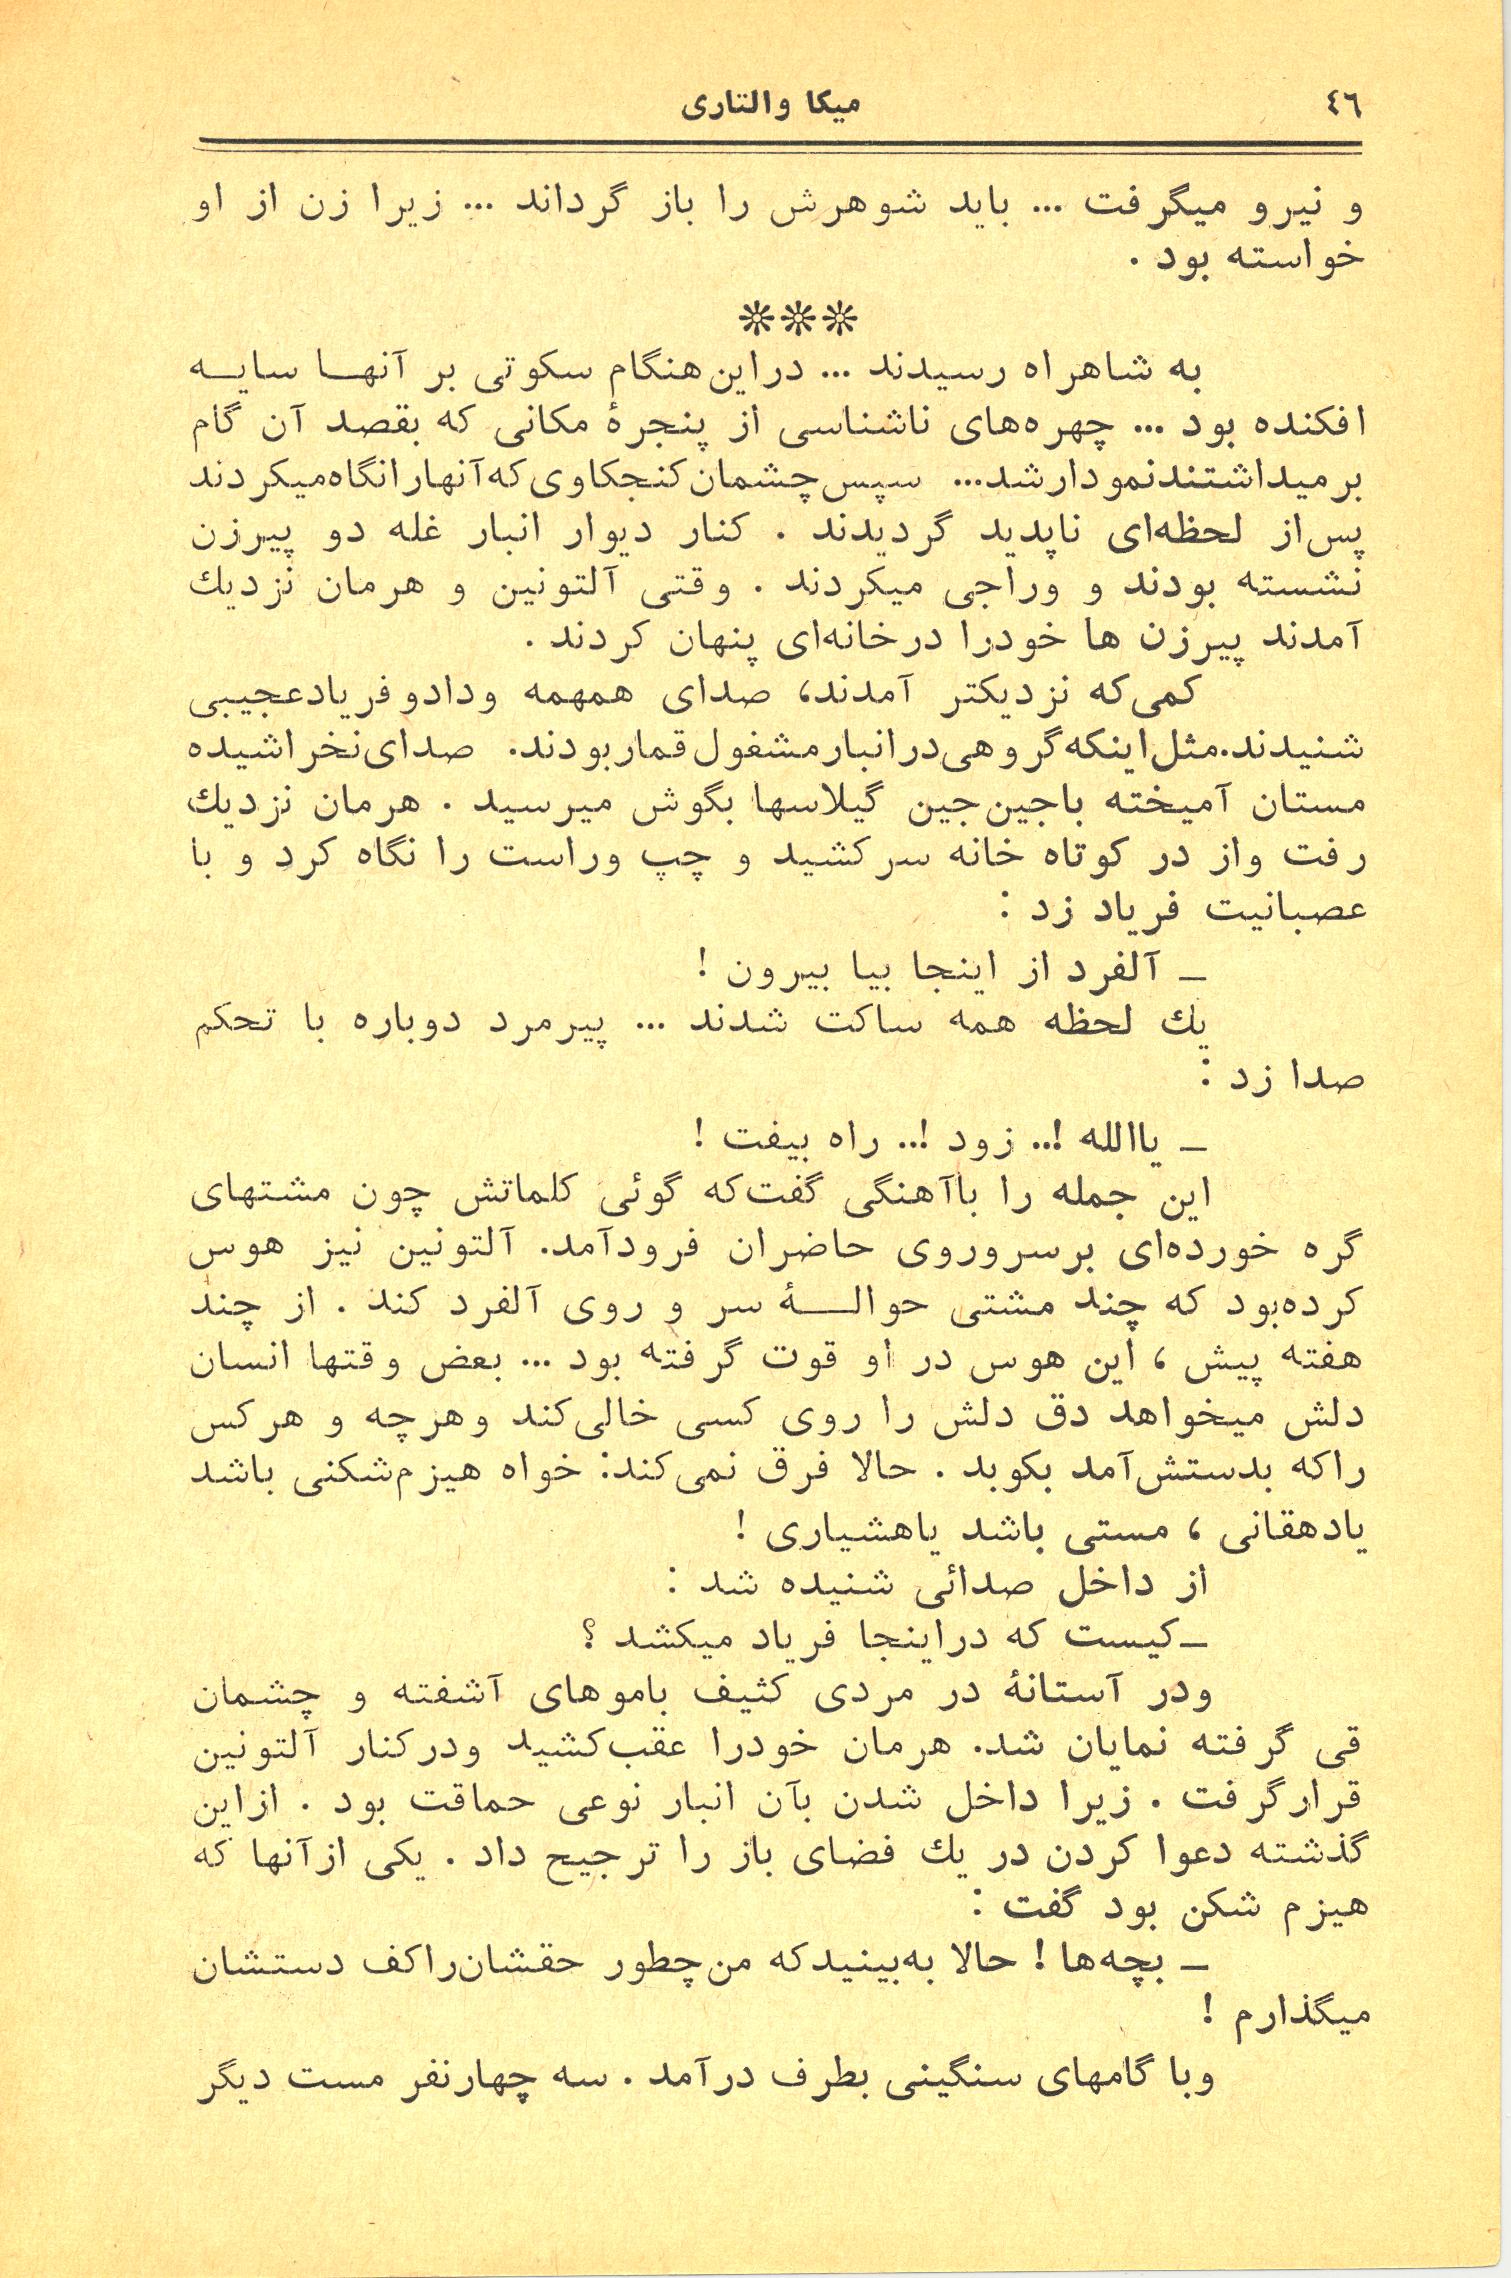 ٤٦
میکا والتاری
و نیرو میگرفت ... باید شوهرش را باز گرداند ... زیرا زن از او
خواسته بود .
***
به شاهراه رسیدند ... دراین هنگام سکوتی بر آنها سایه
افکنده بود ... چهره‌های ناشناسی از پنجرهٔ مکانی که بقصد آن گام
برمیداشتند نمودارشد... سپس چشمان کنجکاوی که آنهارا نگاه میکردند
پس‌از لحظه‌ای ناپدید گردیدند . کنار دیوار انبار غله دو پیرزن
نشسته بودند و وراجی میکردند . وقتی آلتونین و هرمان نزدیك
آمدند پیرزن ها خودرا درخانه‌ای پنهان کردند .
کمی‌که نزدیکتر آمدند، صدای همهمه ودادو فریادعجیبی
شنیدند. مثل اینکه گروهی درانبار مشغول قمار بودند. صدای نخراشیده
مستان آمیخته باجین‌جین گیلاسها بگوش میرسید . هرمان نزدیك
رفت واز در کوتاه خانه سرکشید و چپ وراست را نگاه کرد و با
عصبانیت فریاد زد :
ـ آلفرد از اینجا بیا بیرون !
یك لحظه همه ساکت شدند ... پیرمرد دوباره با تحکم
صدا زد :
ـ یاالله !.. زود !.. راه بیفت !
این جمله را باآهنگی گفت‌که گوئی کلماتش چون مشتهای
گره خورده‌ای برسروروی حاضران فرودآمد. آلتونین نیز هوس
کرده‌بود که چند مشتی حوالـــهٔ سر و روی آلفرد کند . از چند
هفته پیش ، این هوس در او قوت گرفته بود ... بعض وقتها انسان
دلش میخواهد دق دلش را روی کسی خالی‌کند وهرچه و هرکس
راکه بدستش‌آمد بکوبد . حالا فرق نمی‌کند: خواه هیزم‌شکنی باشد
یادهقانی ، مستی باشد یاهشیاری !
از داخل صدائی شنیده شد :
ـ کیست که دراینجا فریاد میکشد ؟
ودر آستانهٔ در مردی کثیف باموهای آشفته و چشمان
قی گرفته نمایان شد. هرمان خودرا عقب‌کشید ودرکنار آلتونین
قرارگرفت . زیرا داخل شدن بآن انبار نوعی حماقت بود . ازاین
گذشته دعوا کردن در یك فضای باز را ترجیح داد . یکی ازآنها که
هیزم شکن بود گفت :
ـ بچه‌ها ! حالا به‌بینیدکه من‌چطور حقشان‌راکف دستشان
میگذارم !
وبا گامهای سنگینی بطرف درآمد . سه چهارنفر مست دیگر